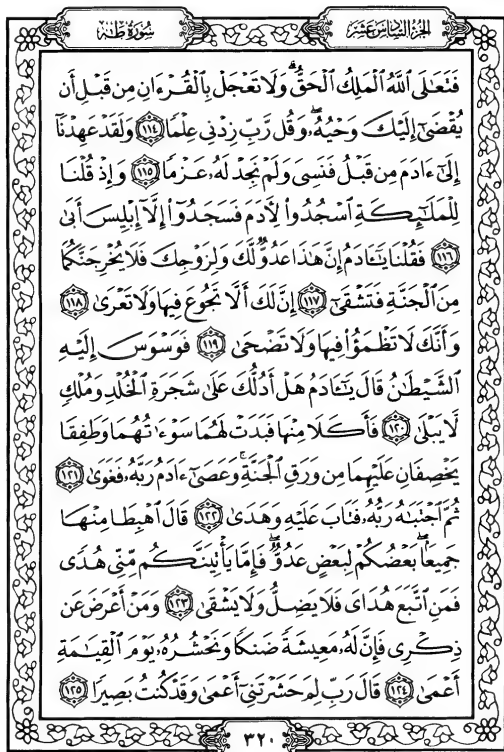 سُورَةُ طٰهٰ
الجُزْءُ السَّادِسُ عَشَرَ
فَتَعَٰلَى ٱللَّهُ ٱلْمَلِكُ ٱلْحَقُّ ۗ وَلَا تَعْجَلْ بِٱلْقُرْءَانِ مِن قَبْلِ أَن
يُقْضَىٰٓ إِلَيْكَ وَحْيُهُۥ ۖ وَقُل رَّبِّ زِدْنِى عِلْمًا ١١٤ وَلَقَدْ عَهِدْنَآ
إِلَىٰٓ ءَادَمَ مِن قَبْلُ فَنَسِىَ وَلَمْ نَجِدْ لَهُۥ عَزْمًا ١١٥ وَإِذْ قُلْنَا
لِلْمَلَٰٓئِكَةِ ٱسْجُدُوا۟ لِءَادَمَ فَسَجَدُوٓا۟ إِلَّآ إِبْلِيسَ أَبَىٰ
١١٦ فَقُلْنَا يَٰٓـَٔادَمُ إِنَّ هَٰذَا عَدُوٌّ لَّكَ وَلِزَوْجِكَ فَلَا يُخْرِجَنَّكُمَا
مِنَ ٱلْجَنَّةِ فَتَشْقَىٰٓ ١١٧ إِنَّ لَكَ أَلَّا تَجُوعَ فِيهَا وَلَا تَعْرَىٰ ١١٨
وَأَنَّكَ لَا تَظْمَؤُا۟ فِيهَا وَلَا تَضْحَىٰ ١١٩ فَوَسْوَسَ إِلَيْهِ
ٱلشَّيْطَٰنُ قَالَ يَٰٓـَٔادَمُ هَلْ أَدُلُّكَ عَلَىٰ شَجَرَةِ ٱلْخُلْدِ وَمُلْكٍ
لَّا يَبْلَىٰ ١٢٠ فَأَكَلَا مِنْهَا فَبَدَتْ لَهُمَا سَوْءَٰتُهُمَا وَطَفِقَا
يَخْصِفَانِ عَلَيْهِمَا مِن وَرَقِ ٱلْجَنَّةِ ۚ وَعَصَىٰٓ ءَادَمُ رَبَّهُۥ فَغَوَىٰ ١٢١
ثُمَّ ٱجْتَبَٰهُ رَبُّهُۥ فَتَابَ عَلَيْهِ وَهَدَىٰ ١٢٢ قَالَ ٱهْبِطَا مِنْهَا
جَمِيعًۢا ۖ بَعْضُكُمْ لِبَعْضٍ عَدُوٌّ ۖ فَإِمَّا يَأْتِيَنَّكُم مِّنِّى هُدًى
فَمَنِ ٱتَّبَعَ هُدَاىَ فَلَا يَضِلُّ وَلَا يَشْقَىٰ ١٢٣ وَمَنْ أَعْرَضَ عَن
ذِكْرِى فَإِنَّ لَهُۥ مَعِيشَةً ضَنكًا وَنَحْشُرُهُۥ يَوْمَ ٱلْقِيَٰمَةِ
أَعْمَىٰ ١٢٤ قَالَ رَبِّ لِمَ حَشَرْتَنِىٓ أَعْمَىٰ وَقَدْ كُنتُ بَصِيرًا ١٢٥
٣٢٠